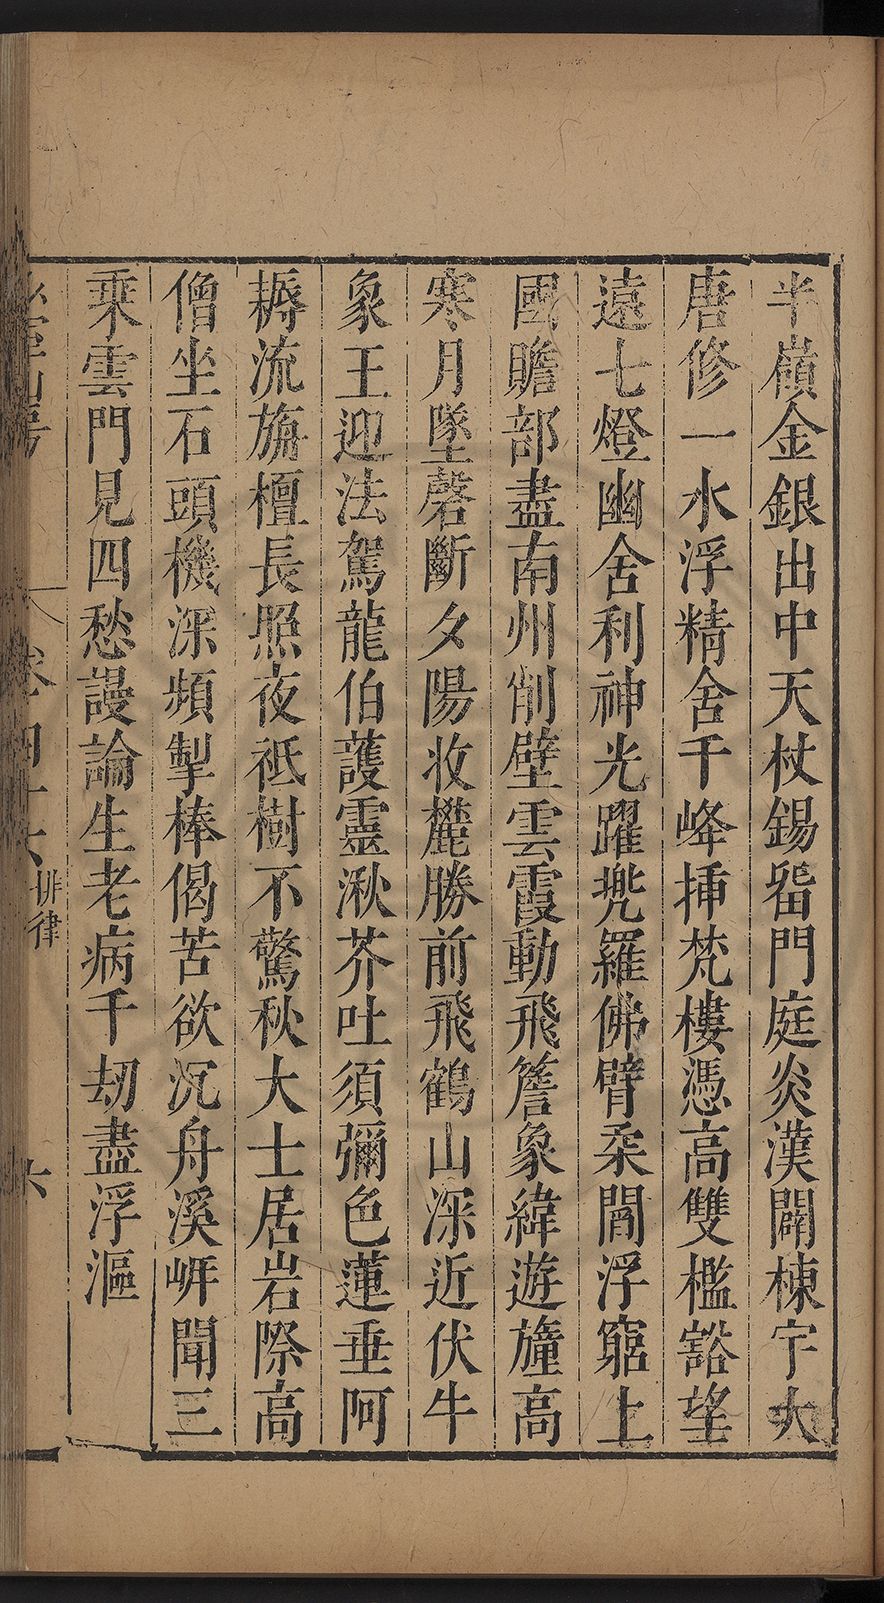 半嶺金銀出中天杖錫畱門庭炎漢闢棟宇大
唐修一水浮精舍千峰揷梵樓憑高雙檻豁望
遠七燈幽舍利神光躍兠羅佛臂柔閻浮窮上
國贍部盡南州削壁雲霞動飛簷象緯遊旛高
寒月墜磬斷夕陽收麓勝前飛鶴山深近伏牛
象王迎法駕龍伯護靈湫芥吐須彌色蓮垂阿
耨流旃檀長照夜祇樹不驚秋大士居岩際高
僧坐石頭機深頻掣棒偈苦欲沉舟溪岼聞三
乘雲門見四愁謾論生老病千刼盡浮漚
山房 卷四十六 排律 六